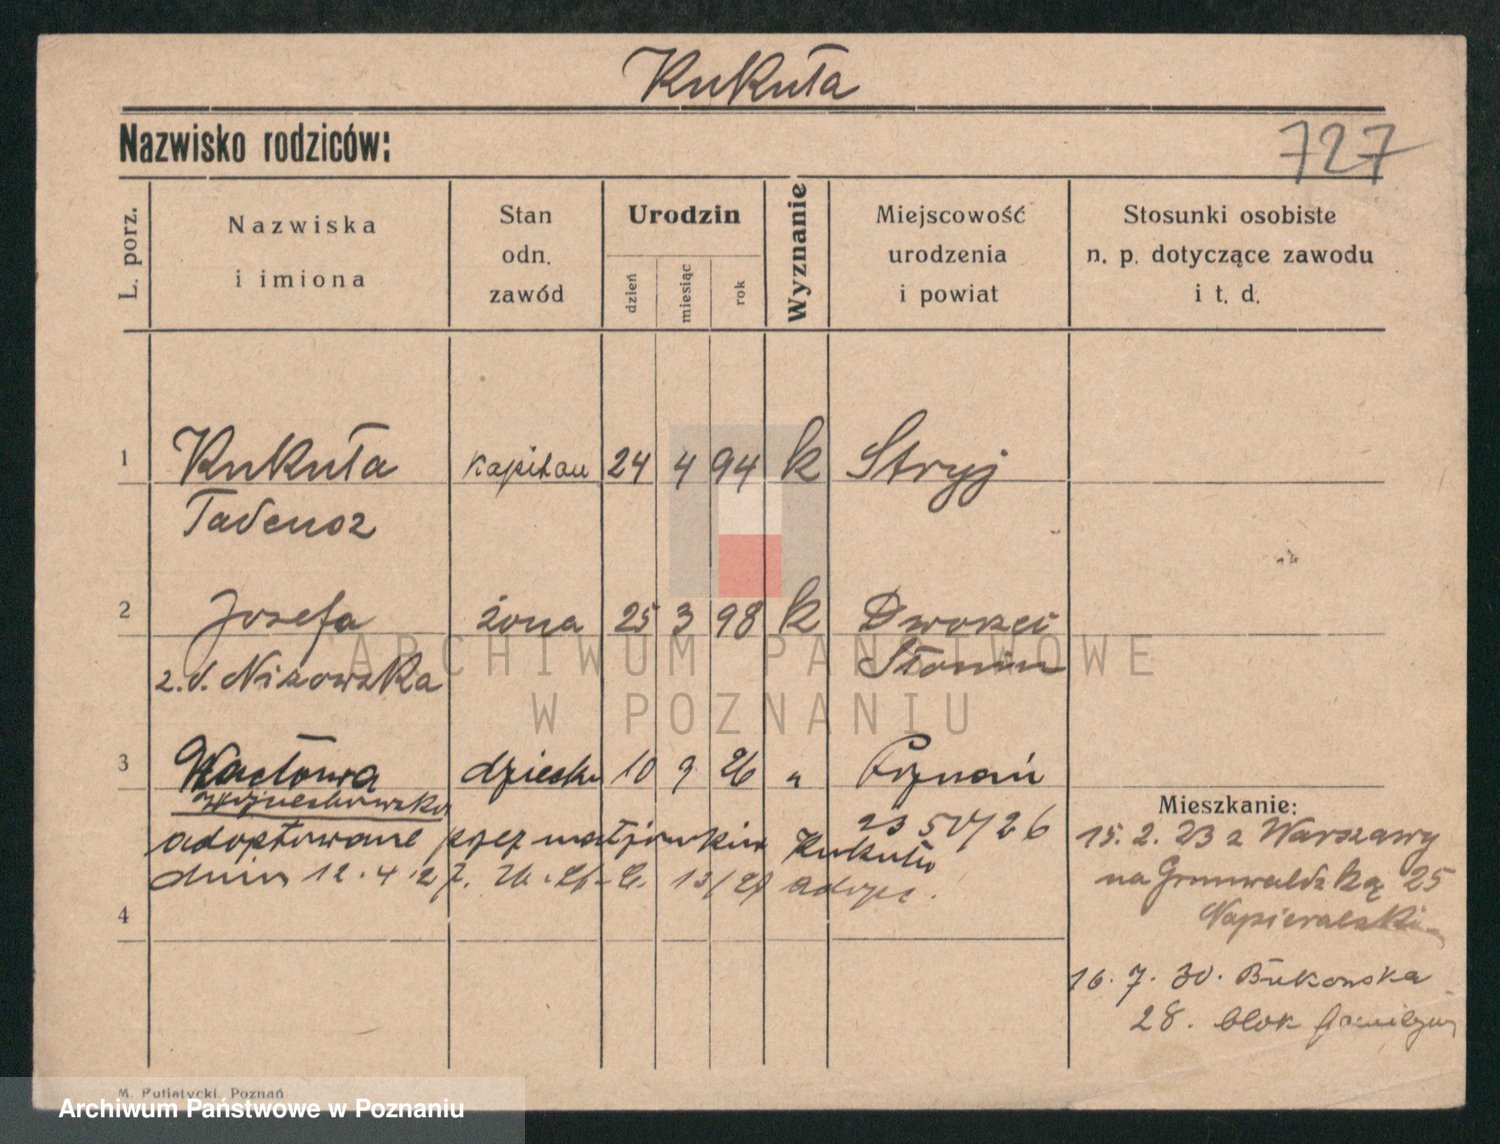 Kukuła
Nazwisko rodziców:
727
L. porz.
Nazwiska
i imiona
Stan
odn.
zawód
Urodzin
dzień
miesiąc
rok
Wyznanie
Miejscowość
urodzenia
i powiat
Stosunki osobiste
n. p. dotyczące zawodu
i t. d.
1 Kukuła kapitan 24 4 94 k Stryj
Tadeusz
2 Józefa żona 25 3 98 k Dworzec
z. d. Nizowska Słonim
ARCHIWUM PAŃSTWOWE
W POZNANIU
3 Wacława dziecko 10 9 26 " Poznań
Wojciechowska
2350/26
adoptowane przez małżonków Kukułów
dnia 12.4.27. 13/27 adopt.
4
Mieszkanie:
15.2.23 z Warszawy
na Grunwaldzką 25
Napieralski
16.7.30. Bukowska
28. blok familijny
M. Putiatycki, Poznań
Archiwum Państwowe w Poznaniu